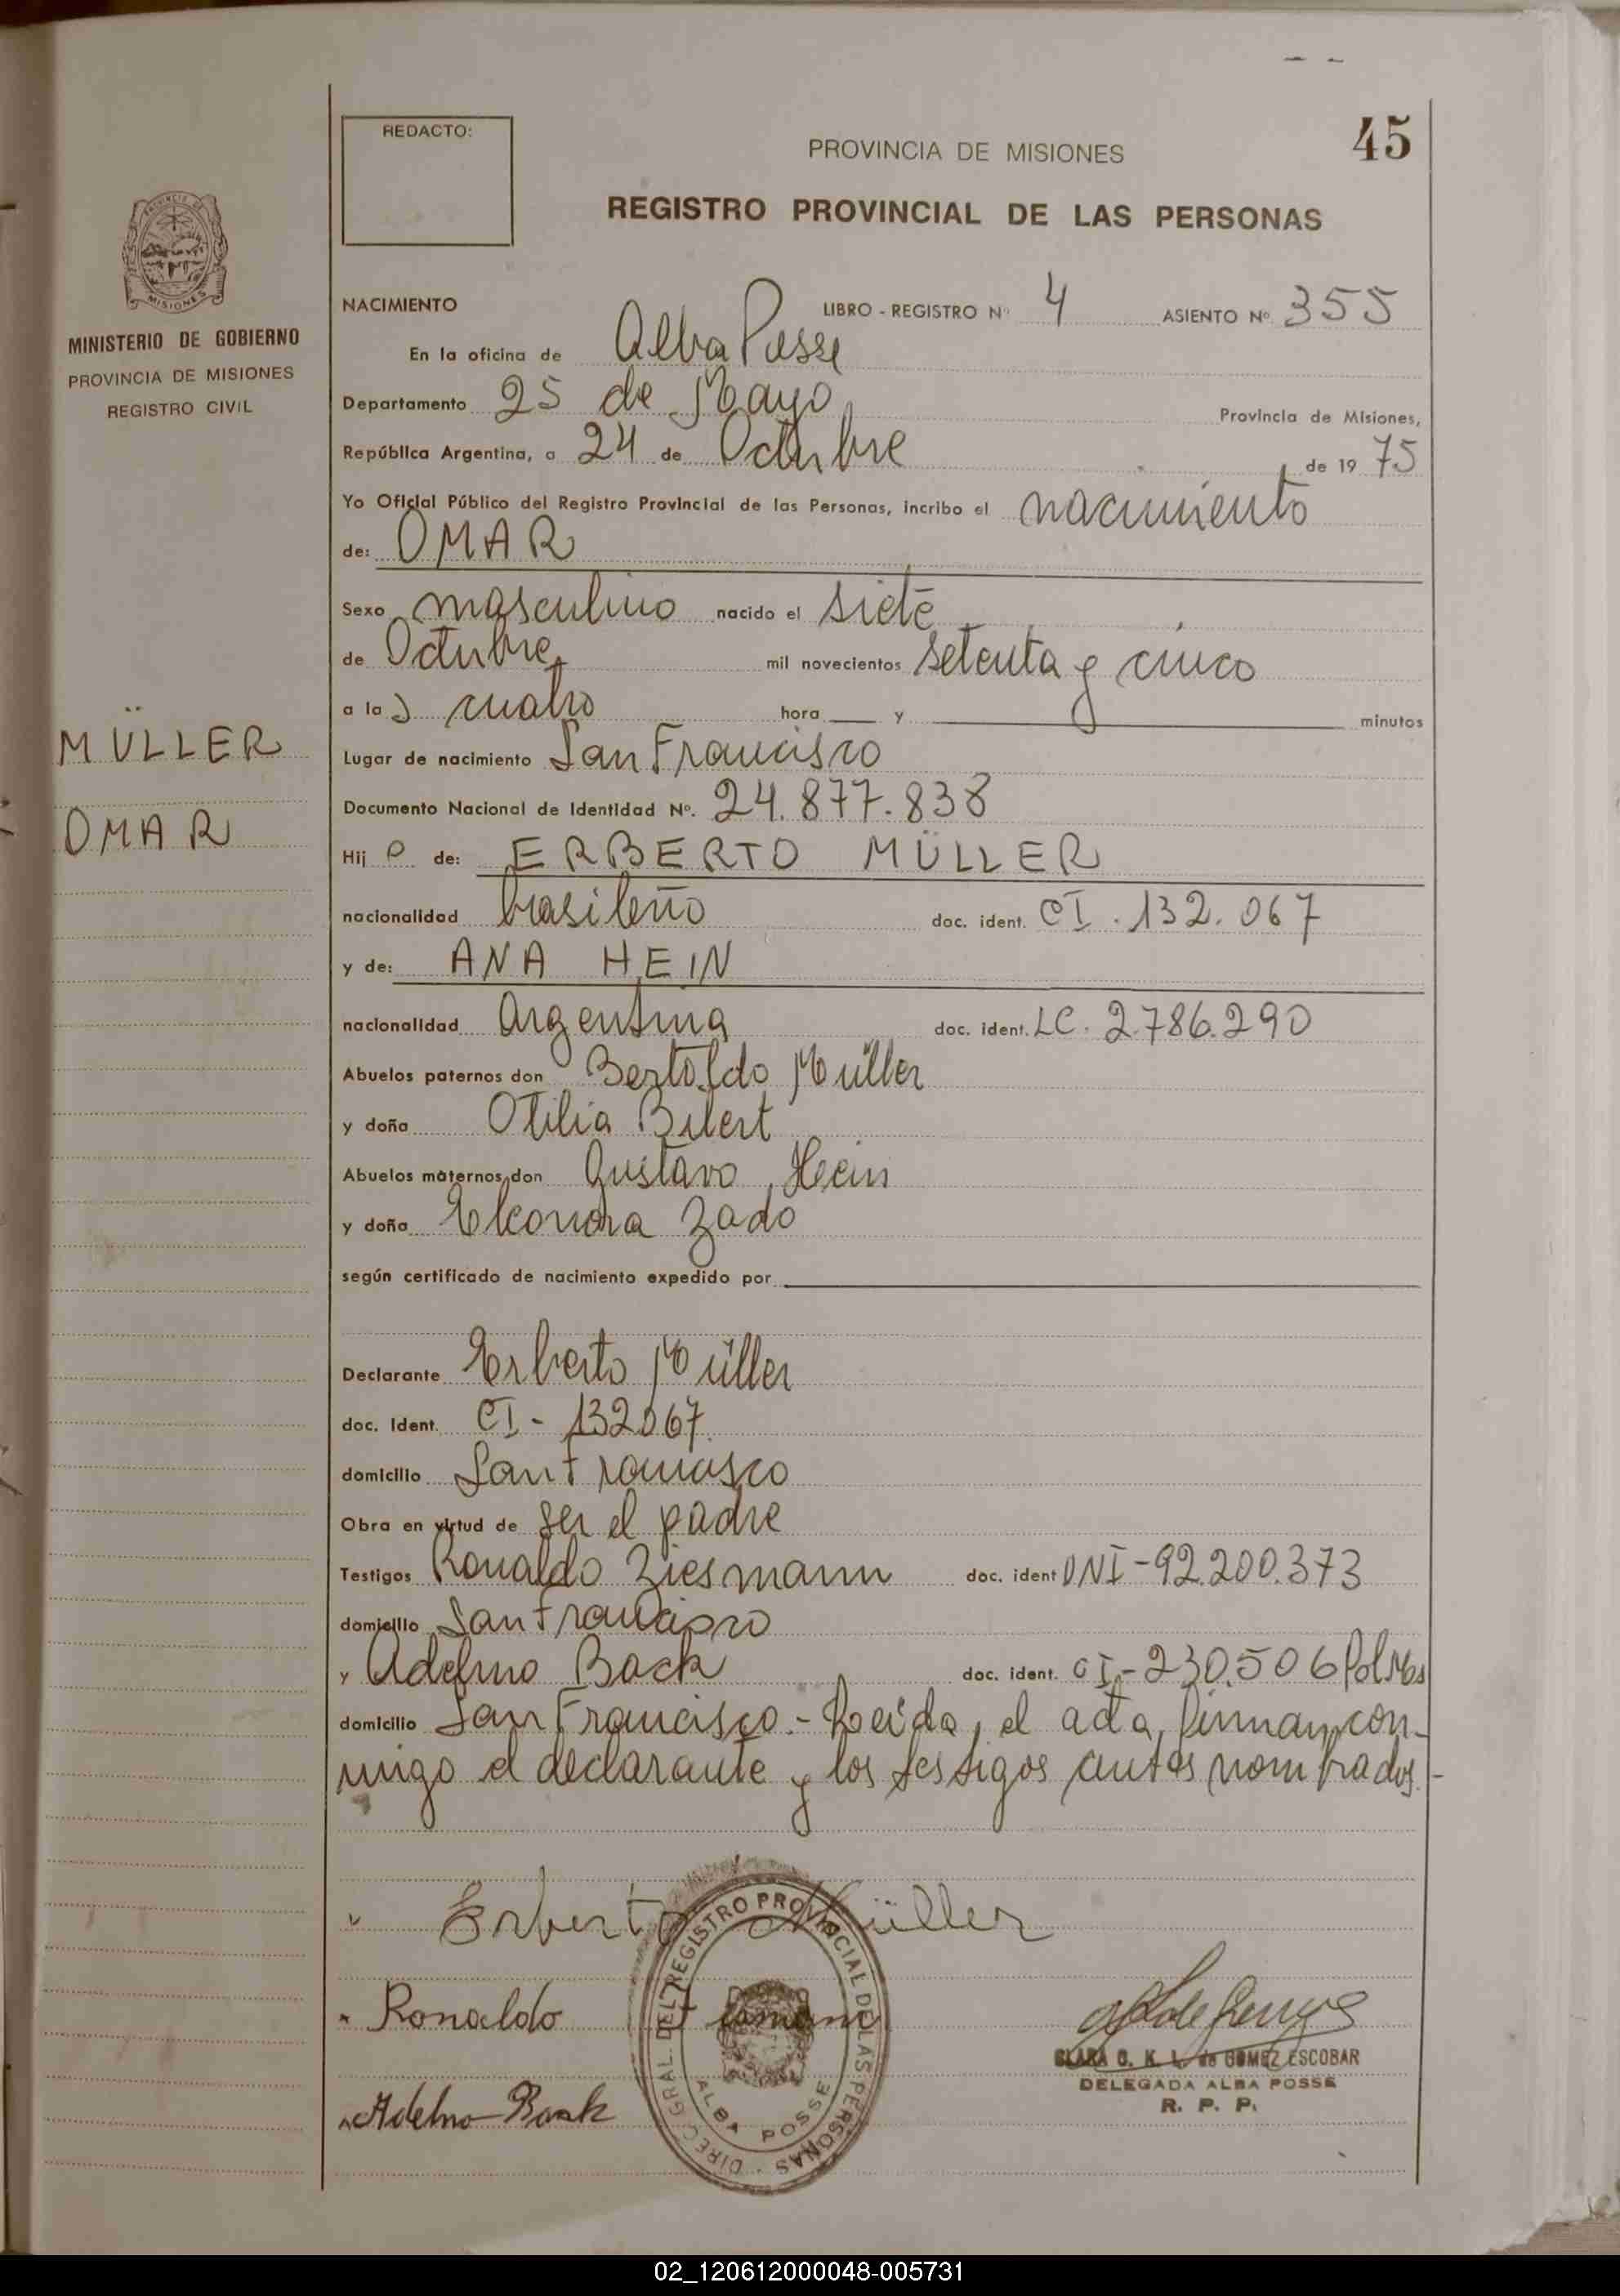 45
REDACTO:
PROVINCIA DE MISIONES
REGISTRO PROVINCIAL DE LAS PERSONAS
PROVINCIA DE
MISIONES
MINISTERIO DE GOBIERNO
PROVINCIA DE MISIONES
REGISTRO CIVIL
MÜLLER
OMAR
NACIMIENTO LIBRO - REGISTRO Nº 4 ASIENTO Nº 355
En la oficina de Alba Posse
Departamento 25 de Mayo Provincia de Misiones,
República Argentina, a 24 de Octubre de 1975
Yo Oficial Público del Registro Provincial de las Personas, incribo el nacimiento
de: OMAR
Sexo masculino nacido el siete
de Octubre mil novecientos setenta y cinco
a las cuatro hora y minutos
Lugar de nacimiento San Francisco
Documento Nacional de Identidad Nº. 24.877.838
Hijo de: ERBERTO MÜLLER
nacionalidad brasileño doc. ident. CI. 132.067
y de: ANA HEIN
nacionalidad Argentina doc. ident. LC. 2.786.290
Abuelos paternos don Bertoldo Müller
y doña Otilia
Abuelos maternos don Gustavo Hein
y doña Eleonora Zado
según certificado de nacimiento expedido por
Declarante Erberto Müller
doc. Ident. CI - 132067
domicilio San Francisco
Obra en virtud de ser el padre
Testigos Ronaldo Ziesmann doc. ident DNI - 92.200.373
domicilio San Francisco
y Adelmo Back doc. ident. CI - 230.506 Pol Mes
domicilio San Francisco.- Leída el acta, firman con-
migo el declarante y los testigos antes nombrados.-
Erberto Müller
Ronaldo
Adelmo Back
DIREC. GRAL. DEL REGISTRO PROVINCIAL DE LAS PERSONAS
ALBA POSSE
CLARA O. K. L. de GOMEZ ESCOBAR
DELEGADA ALBA POSSE
R. P. P.
02_120612000048-005731